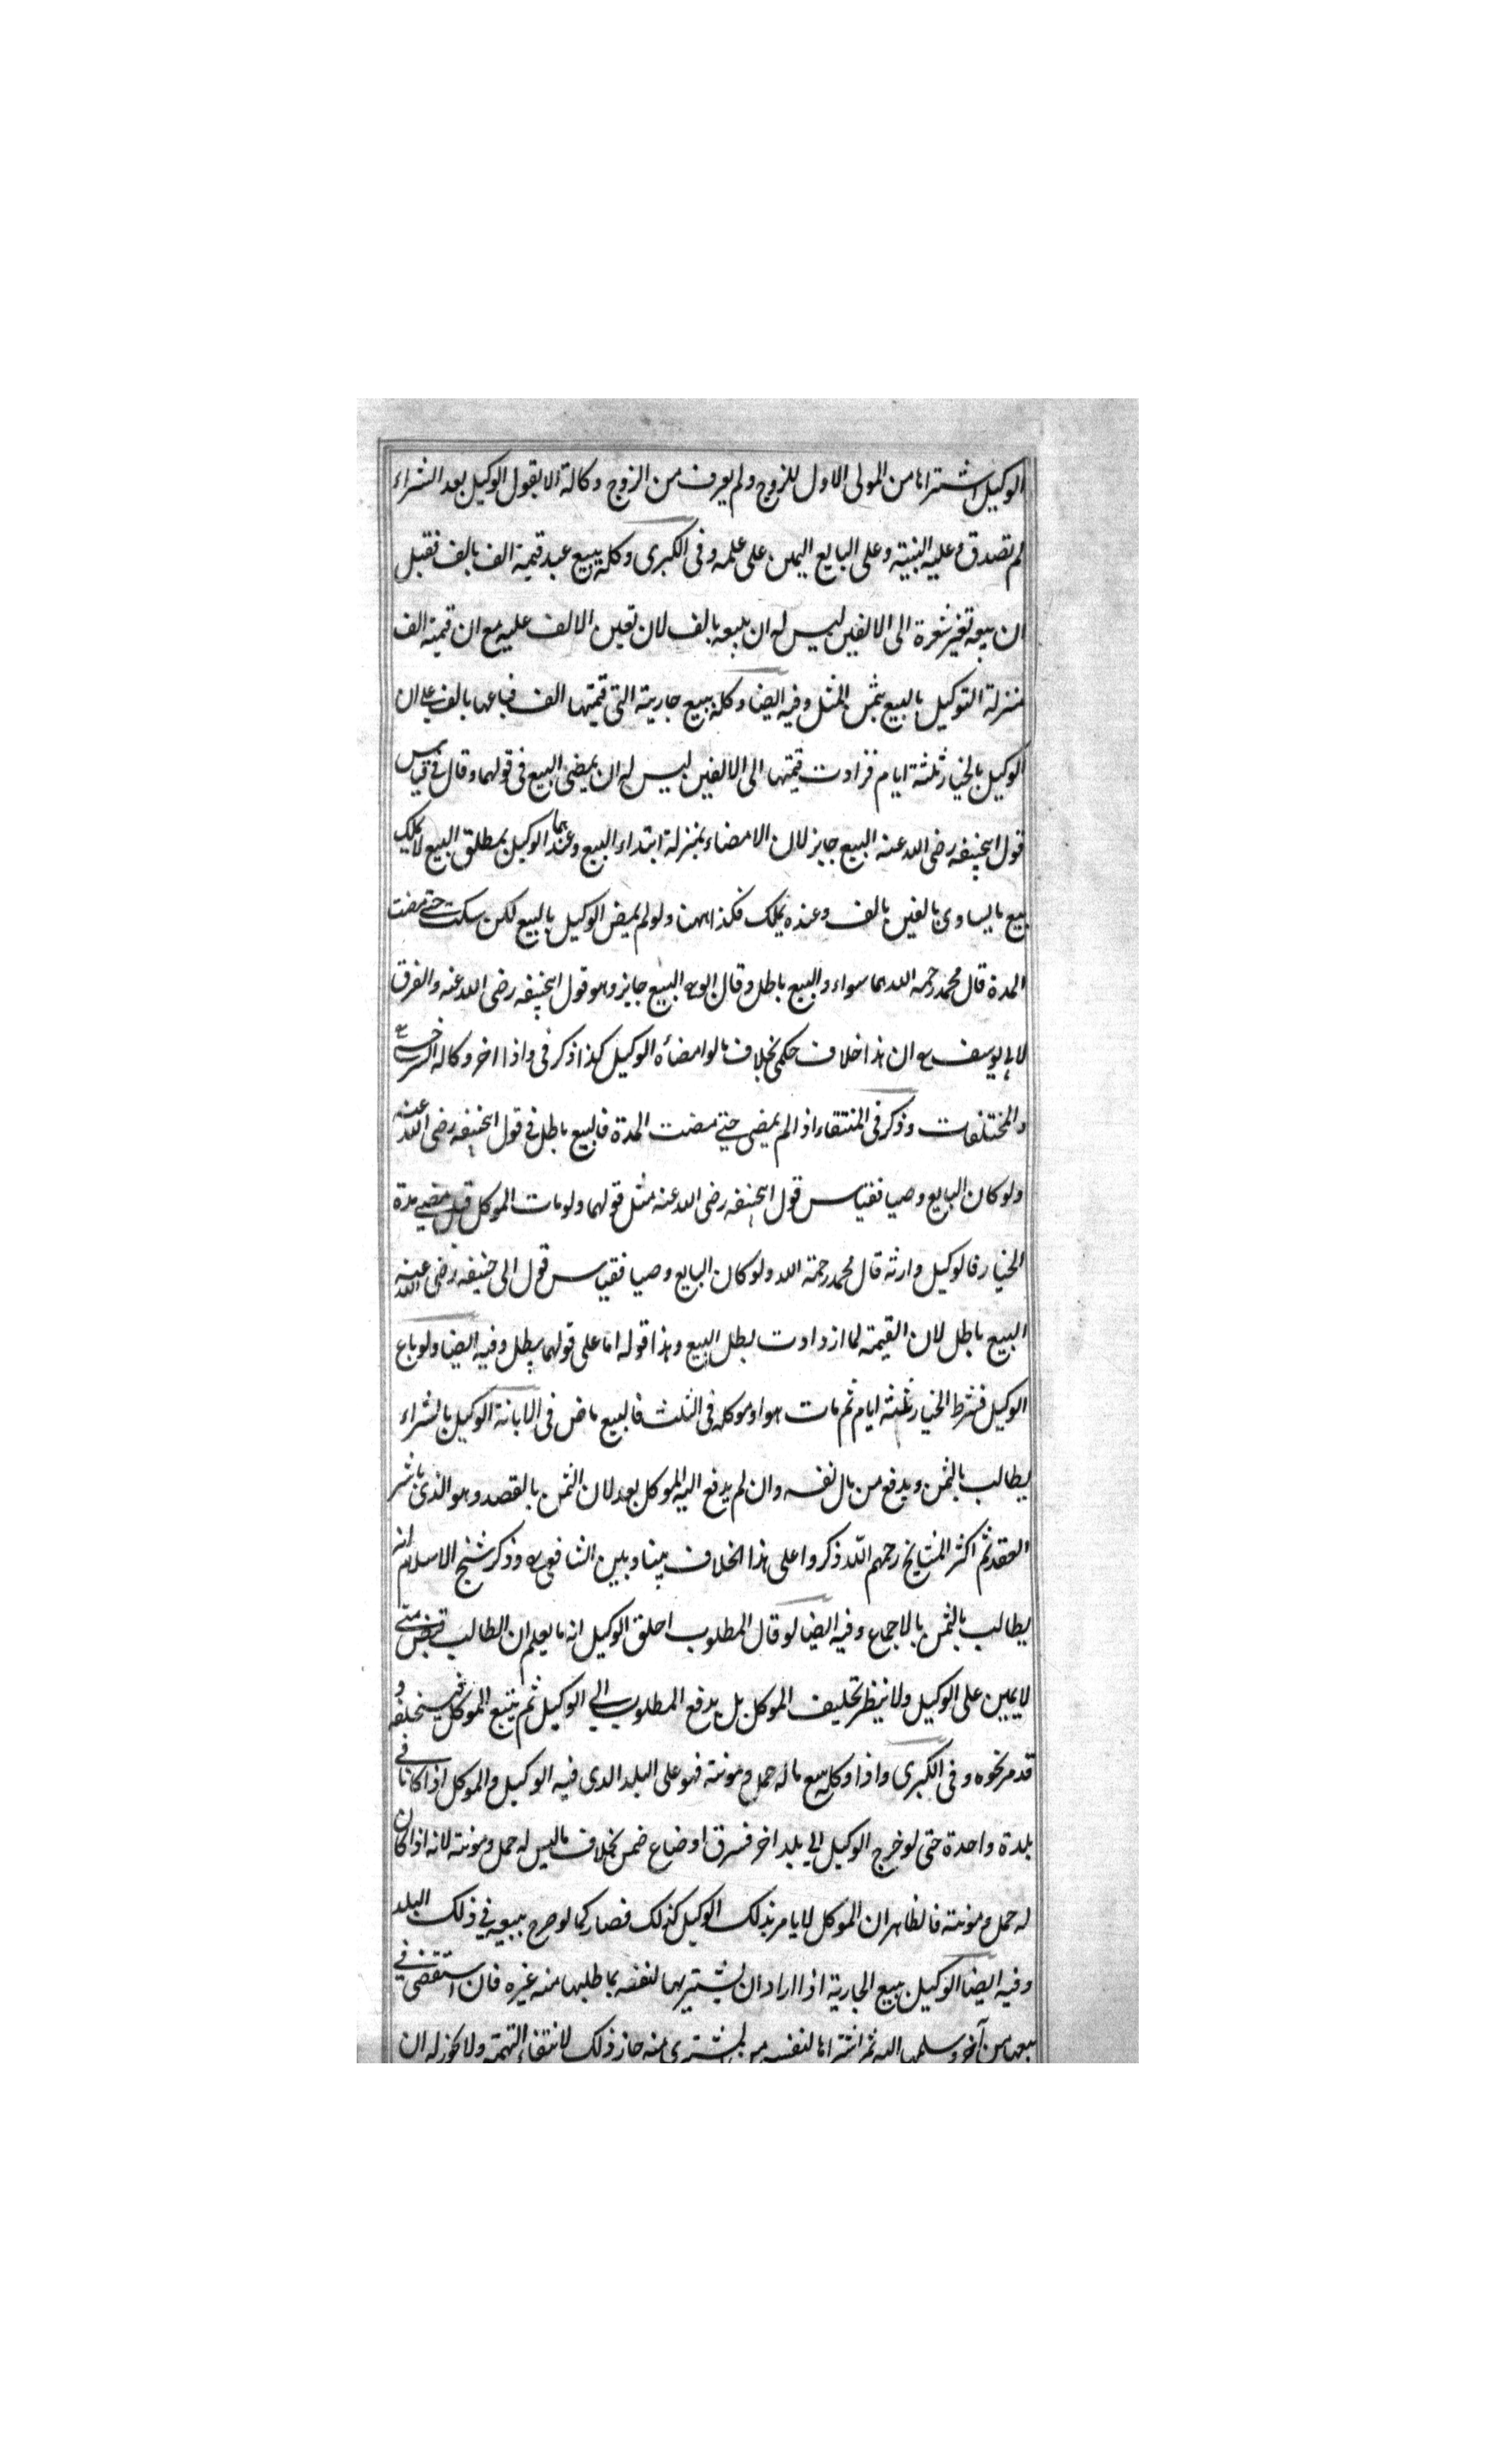 الوكيل اشتراها من المولى الاول للزوج ولم يعرف من الزوج وكالة الا بقول الوكيل بعد الشراء
لم تصدق وعليه البينة وعلى البايع اليمين على علمه وفى الكبرى وكله ببيع عبد قيمة الف بالف فقبل
ان يبيعه تغير سعره الى الالفين ليس له ان يبيعه بالف لان تعين الالف عليه مع ان قيمته الف
بمنزلة التوكيل بالبيع بثمن المثل وفيه ايضا وكله ببيع جاريته التى قيمتها الف فباعها بالف على ان
الوكيل بالخيار ثلثة ايام فزادت قيمتها الى الالفين ليس له ان يمضى البيع فى قولهما وقال فى قياس
قول ابيحنيفه رضى الله عنه البيع جايز لان الامضاء بمنزلة ابتداء البيع وعندهما الوكيل بمطلق البيع لا يملك
بيع ما يساوى بالفين بالف وعنده يملك فكذا ههنا ولو لم يمض الوكيل بالبيع لكن سكت حتى مضت
المدة قال محمد رحمه الله هما سواء والبيع باطل وقال ابو البيع جايز وهو قول ابيحنيفه رضى الله عنه والفرق
لابى يوسف ان هذا خلاف حكمى بخلاف ما لو امضاه الوكيل كذا ذكر فى واذا اخر وكالة السرخسى
والمختلفات وذكر فى المنتقاء اذا لم يمض حتى مضت المدة فالبيع باطل فى قول ابيحنيفه رضى الله عنه
ولو كان البايع وصيا فقياس قول ابيحنيفه رضى الله عنه مثل قولهما ولو مات الموكل قبل مضى مدة
الخيار فالوكيل وارثه قال محمد رحمة الله ولو كان البايع وصيا فقياس قول ابى حنيفه رضى الله عنه
البيع باطل لان القيمة لما ازدادت بطل البيع وهذا قوله اما على قولهما يبطل وفيه ايضا ولو باع
الوكيل فشرط الخيار ثلثه ايام ثم مات هو او موكله فى الثلث فالبيع ماض فى الابانة الوكيل بالشراء
يطالب بالثمن ويدفع من مال نفسه وان لم يدفع اليه الموكل بعد لان الثمن بالقصد وهو الذى باشر
العقد ثم اكثر المشايخ رحمهم الله ذكروا على هذا الخلاف بيننا وبين الشافعى وذكر شيخ الاسلام انه
يطالب بالثمن بالاجماع وفيه ايضا لو قال المطلوب احلف الوكيل انه ما يعلم ان الطالب قبض منى
لا يمين على الوكيل ولا ينظر تحليف الموكل بل يدفع المطلوب الى الوكيل ثم يتبع الموكل فيستحلفه و
قد مر نحوه وفى الكبرى واذا وكله ببيع ما له حمل ومونته فهو على البلد الذى فيه الوكيل والموكل اذا كانا فى
بلدة واحدة حتى لو خرج الوكيل الى بلد اخر فسرق او ضاع ضمن بخلاف ما ليس له حمل ومونته لانه اذا كان
له حمل ومونته فالظاهر ان الموكل لا يامر بذلك الوكيل كذلك فصار كما لو صرح ببيعه فى ذلك البلد
وفيه ايضا الوكيل ببيع الجارية اذا اراد ان يشتريها لنفسه بما طلبها منه غيره فان استقضى فى
بيعها من آخر وسلمها اليه ثم اشتراها لنفسه من المشترى منه جاز ذلك لانتفاء التهمة ولا يجوز له ان